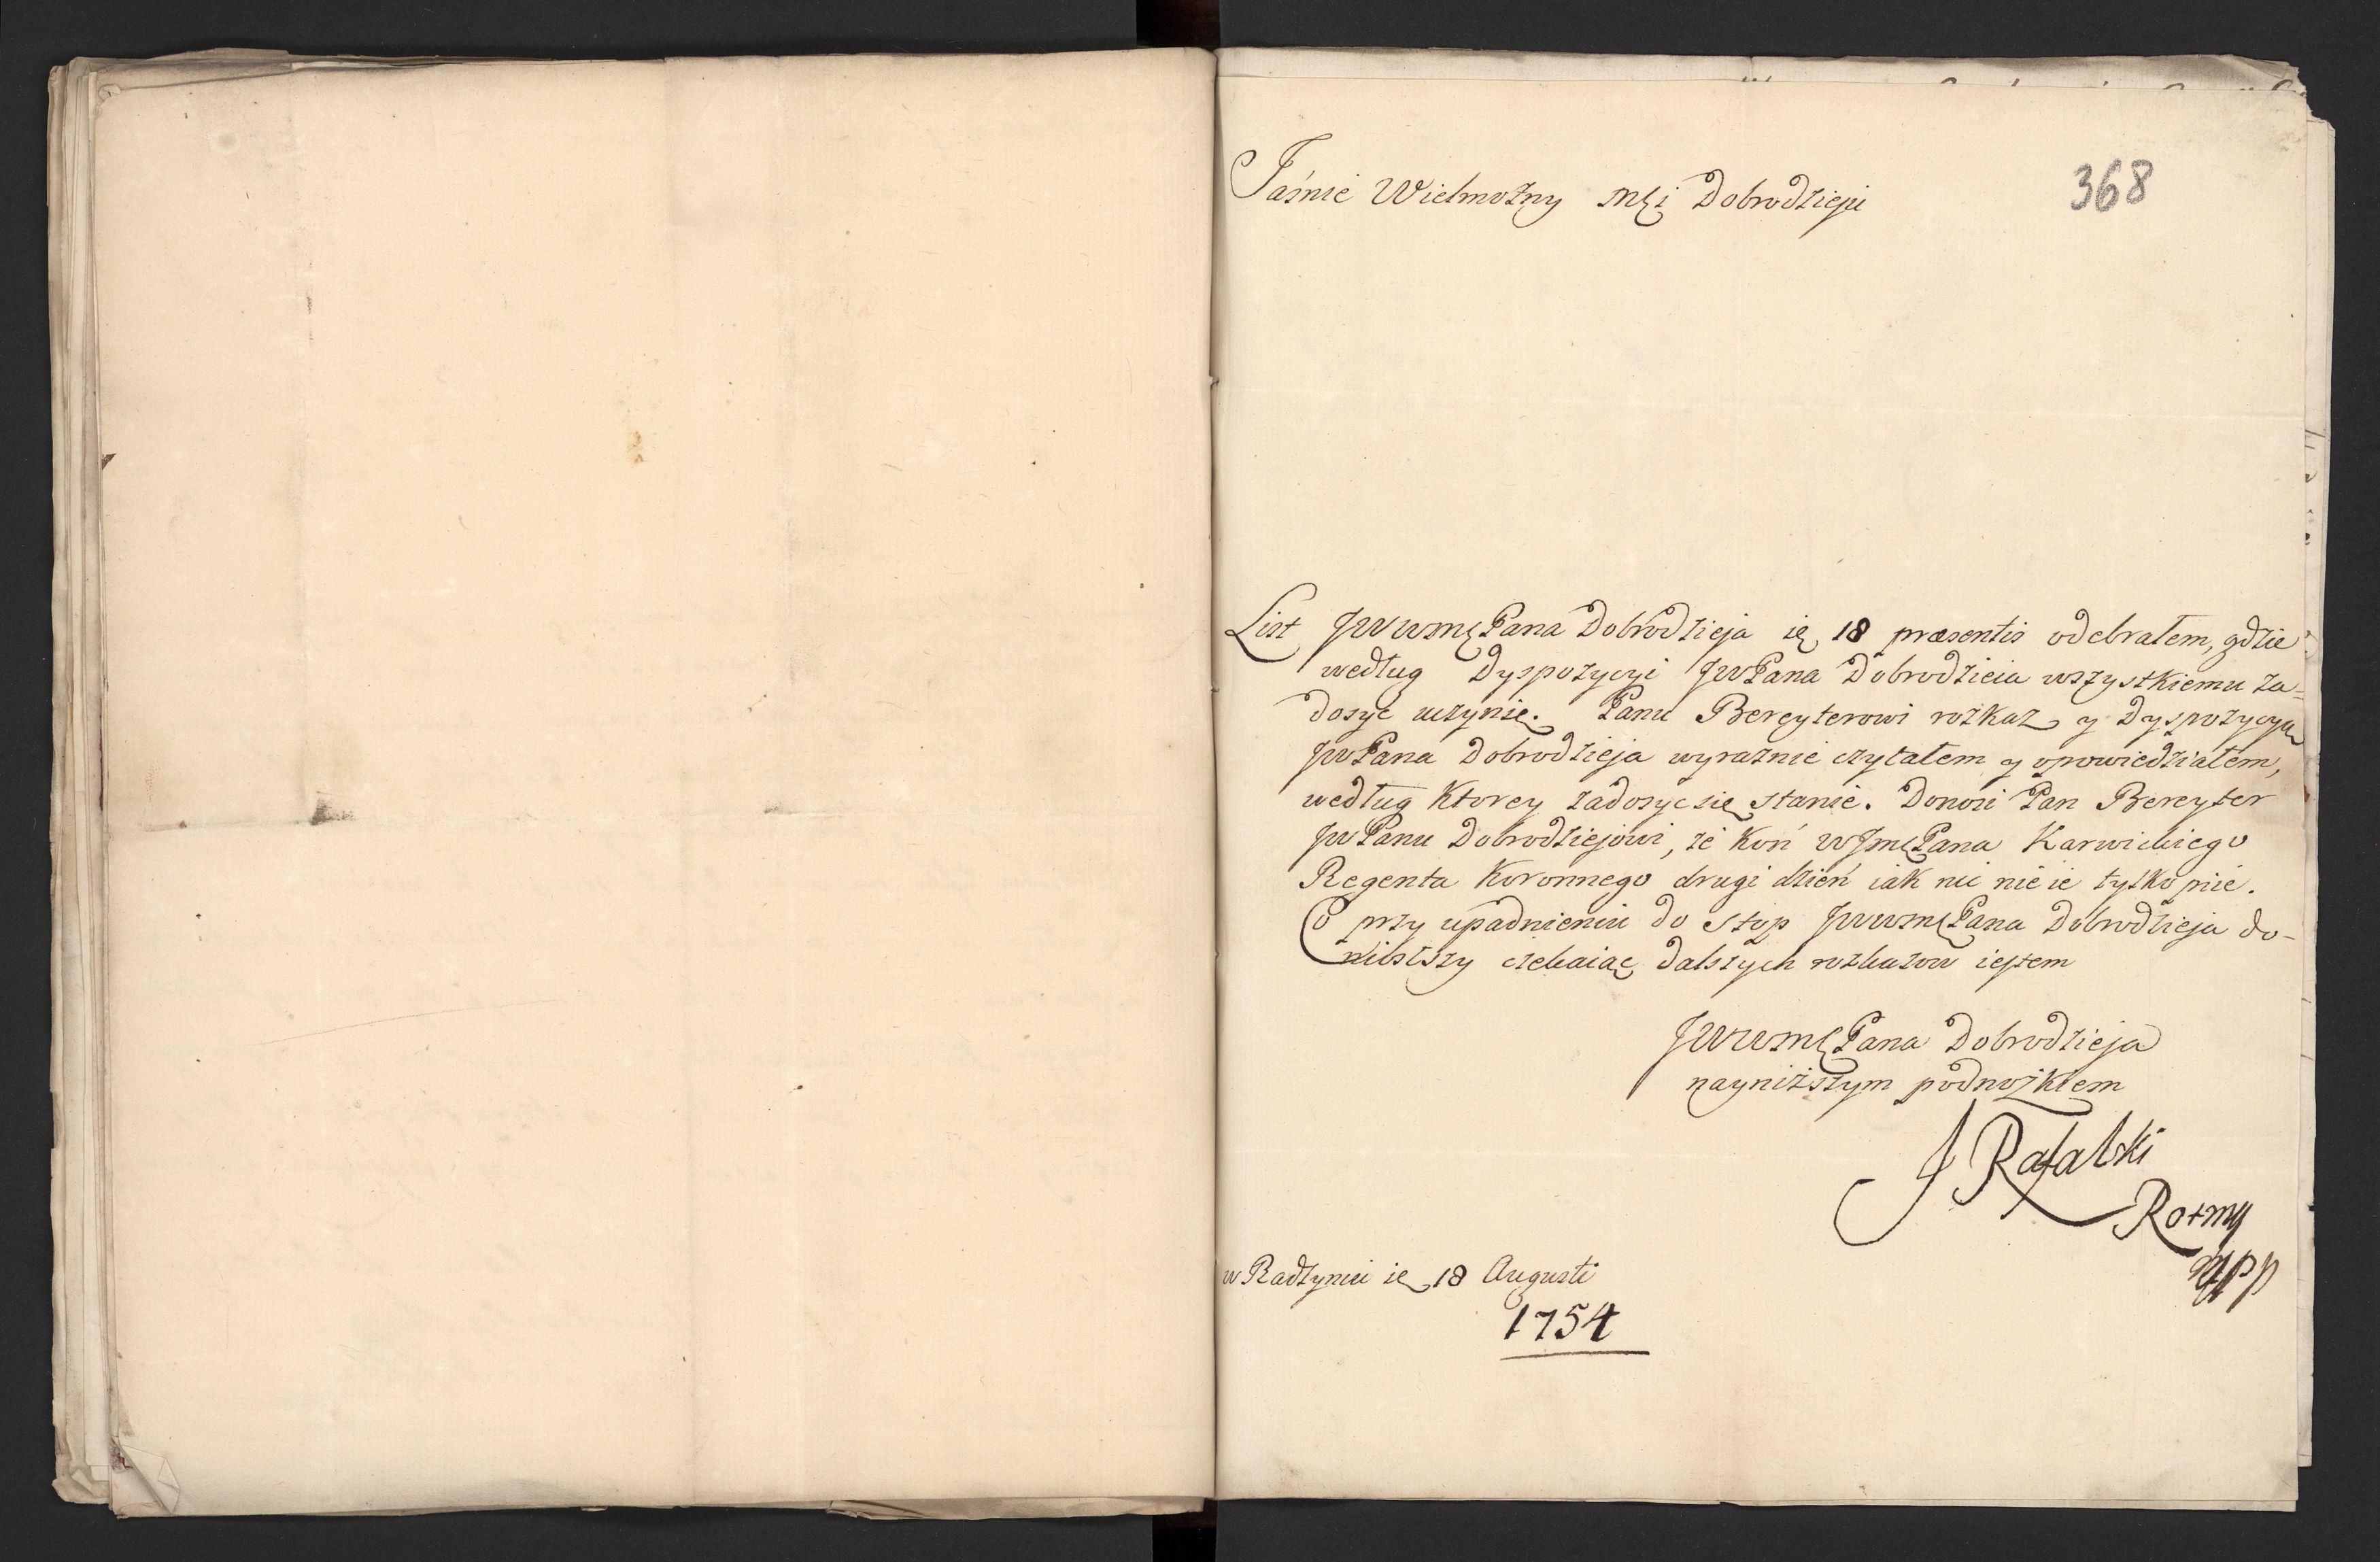 368
Jaśnie Wielmożny Mći Dobrodzieju
List JWWMć Pana Dobrodzieja ie 18 præsentis odebrałem, gdzie
według Dyspozycyi JWPana Dobrodzieia wszystkiemu za=
dosyć uczynię. Panu Bereyterowi rozkaz y Dyspozycyą
JWPana Dobrodzieja wyraznie czytałem y opowiedziałem,
według Ktorey zadosyc się stanie. Donosi Pan Bereyter
JWPanu Dobrodziejowi, że Koń WJMć Pana Karwickiego
Regenta Koronnego drugi dzień iak nic nie ie tylko pije.
Co przy upadnieniu do Stop JWWMć Pana Dobrodzieja do-
niosszy czekaiąc dalszych rozkazow iestem
JWWMć Pana Dobrodzieja
nayniższym podnożkiem
J Rafalski
Rotmy
mpp
w Radzyniu ie 18 Augusti
1754